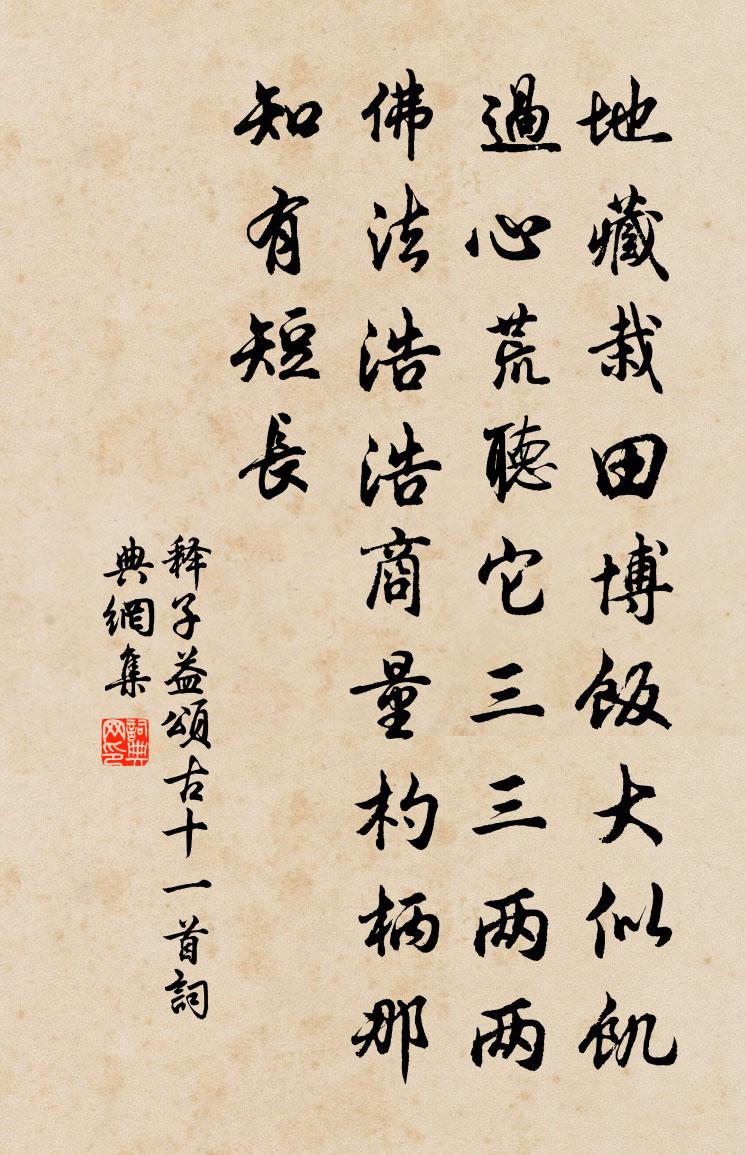 地藏栽田博飯大似飢
過心荒聽它三三两两
佛法浩浩商量杓柄那
知有短長
释子益頌古十一首詞
典網集
詞典
网印